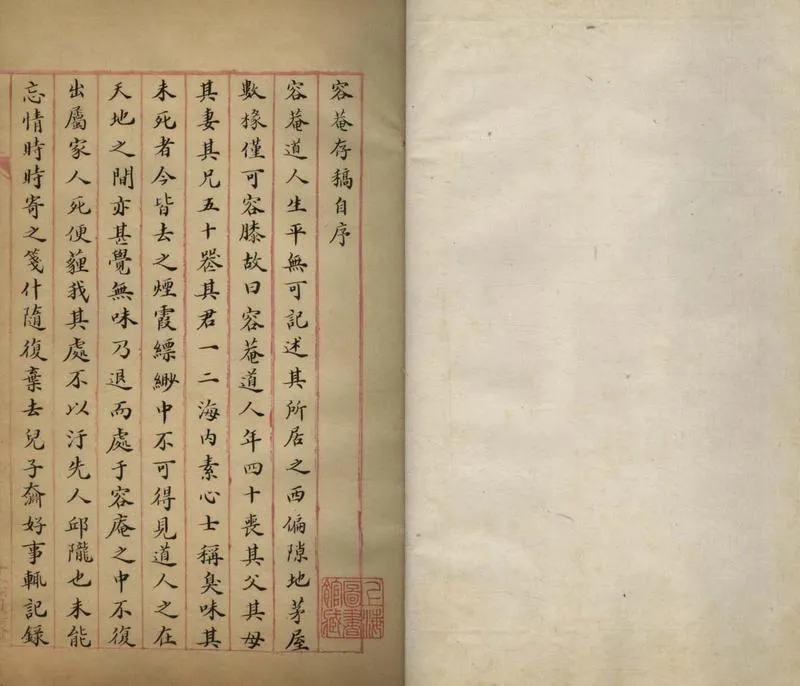 容菴存稿自序
容菴道人生平無可記述其所居之西偏隙地茅屋
數椽僅可容膝故曰容菴道人年四十喪其父其母
其妻其兄五十器其君一二海内素心士稱臭味其
未死者今皆去之煙霞縹緲中不可得見道人之在
天地之間亦甚覺無味乃退而處于容庵之中不復
出屬家人死便薶我其處不以汙先人邱隴也未能
忘情時時寄之箋什隨復棄去兒子奫好事輒記録
圖書館藏